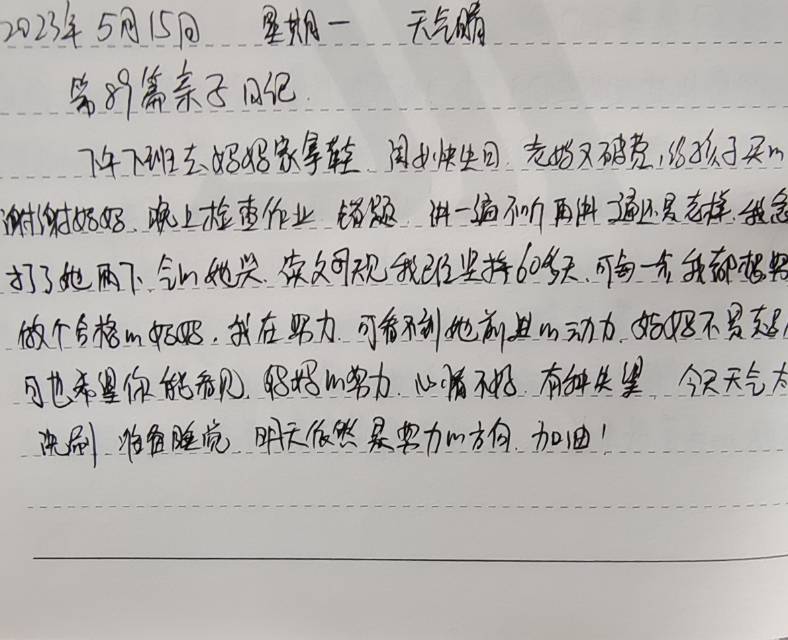 2023年5月15日 星期一 天气晴
第89篇亲子日记.
下午下班去妈妈家拿鞋. 闺女快生日. 老妈又破费, 给孩子买
谢谢妈妈. 晚上检查作业 错题 讲一遍不 再讲 还是老样.
打了她两下. 她哭. 我已经坚持60多天. 可每一次我都想
做个合格的妈妈. 我在努力. 可看不到她前进的动力. 妈妈不是
可也希望你能看见. 妈妈的努力. 心情不好. 有种失望. 今天天气
洗刷 准备睡觉. 明天依然是努力的方向. 加油!